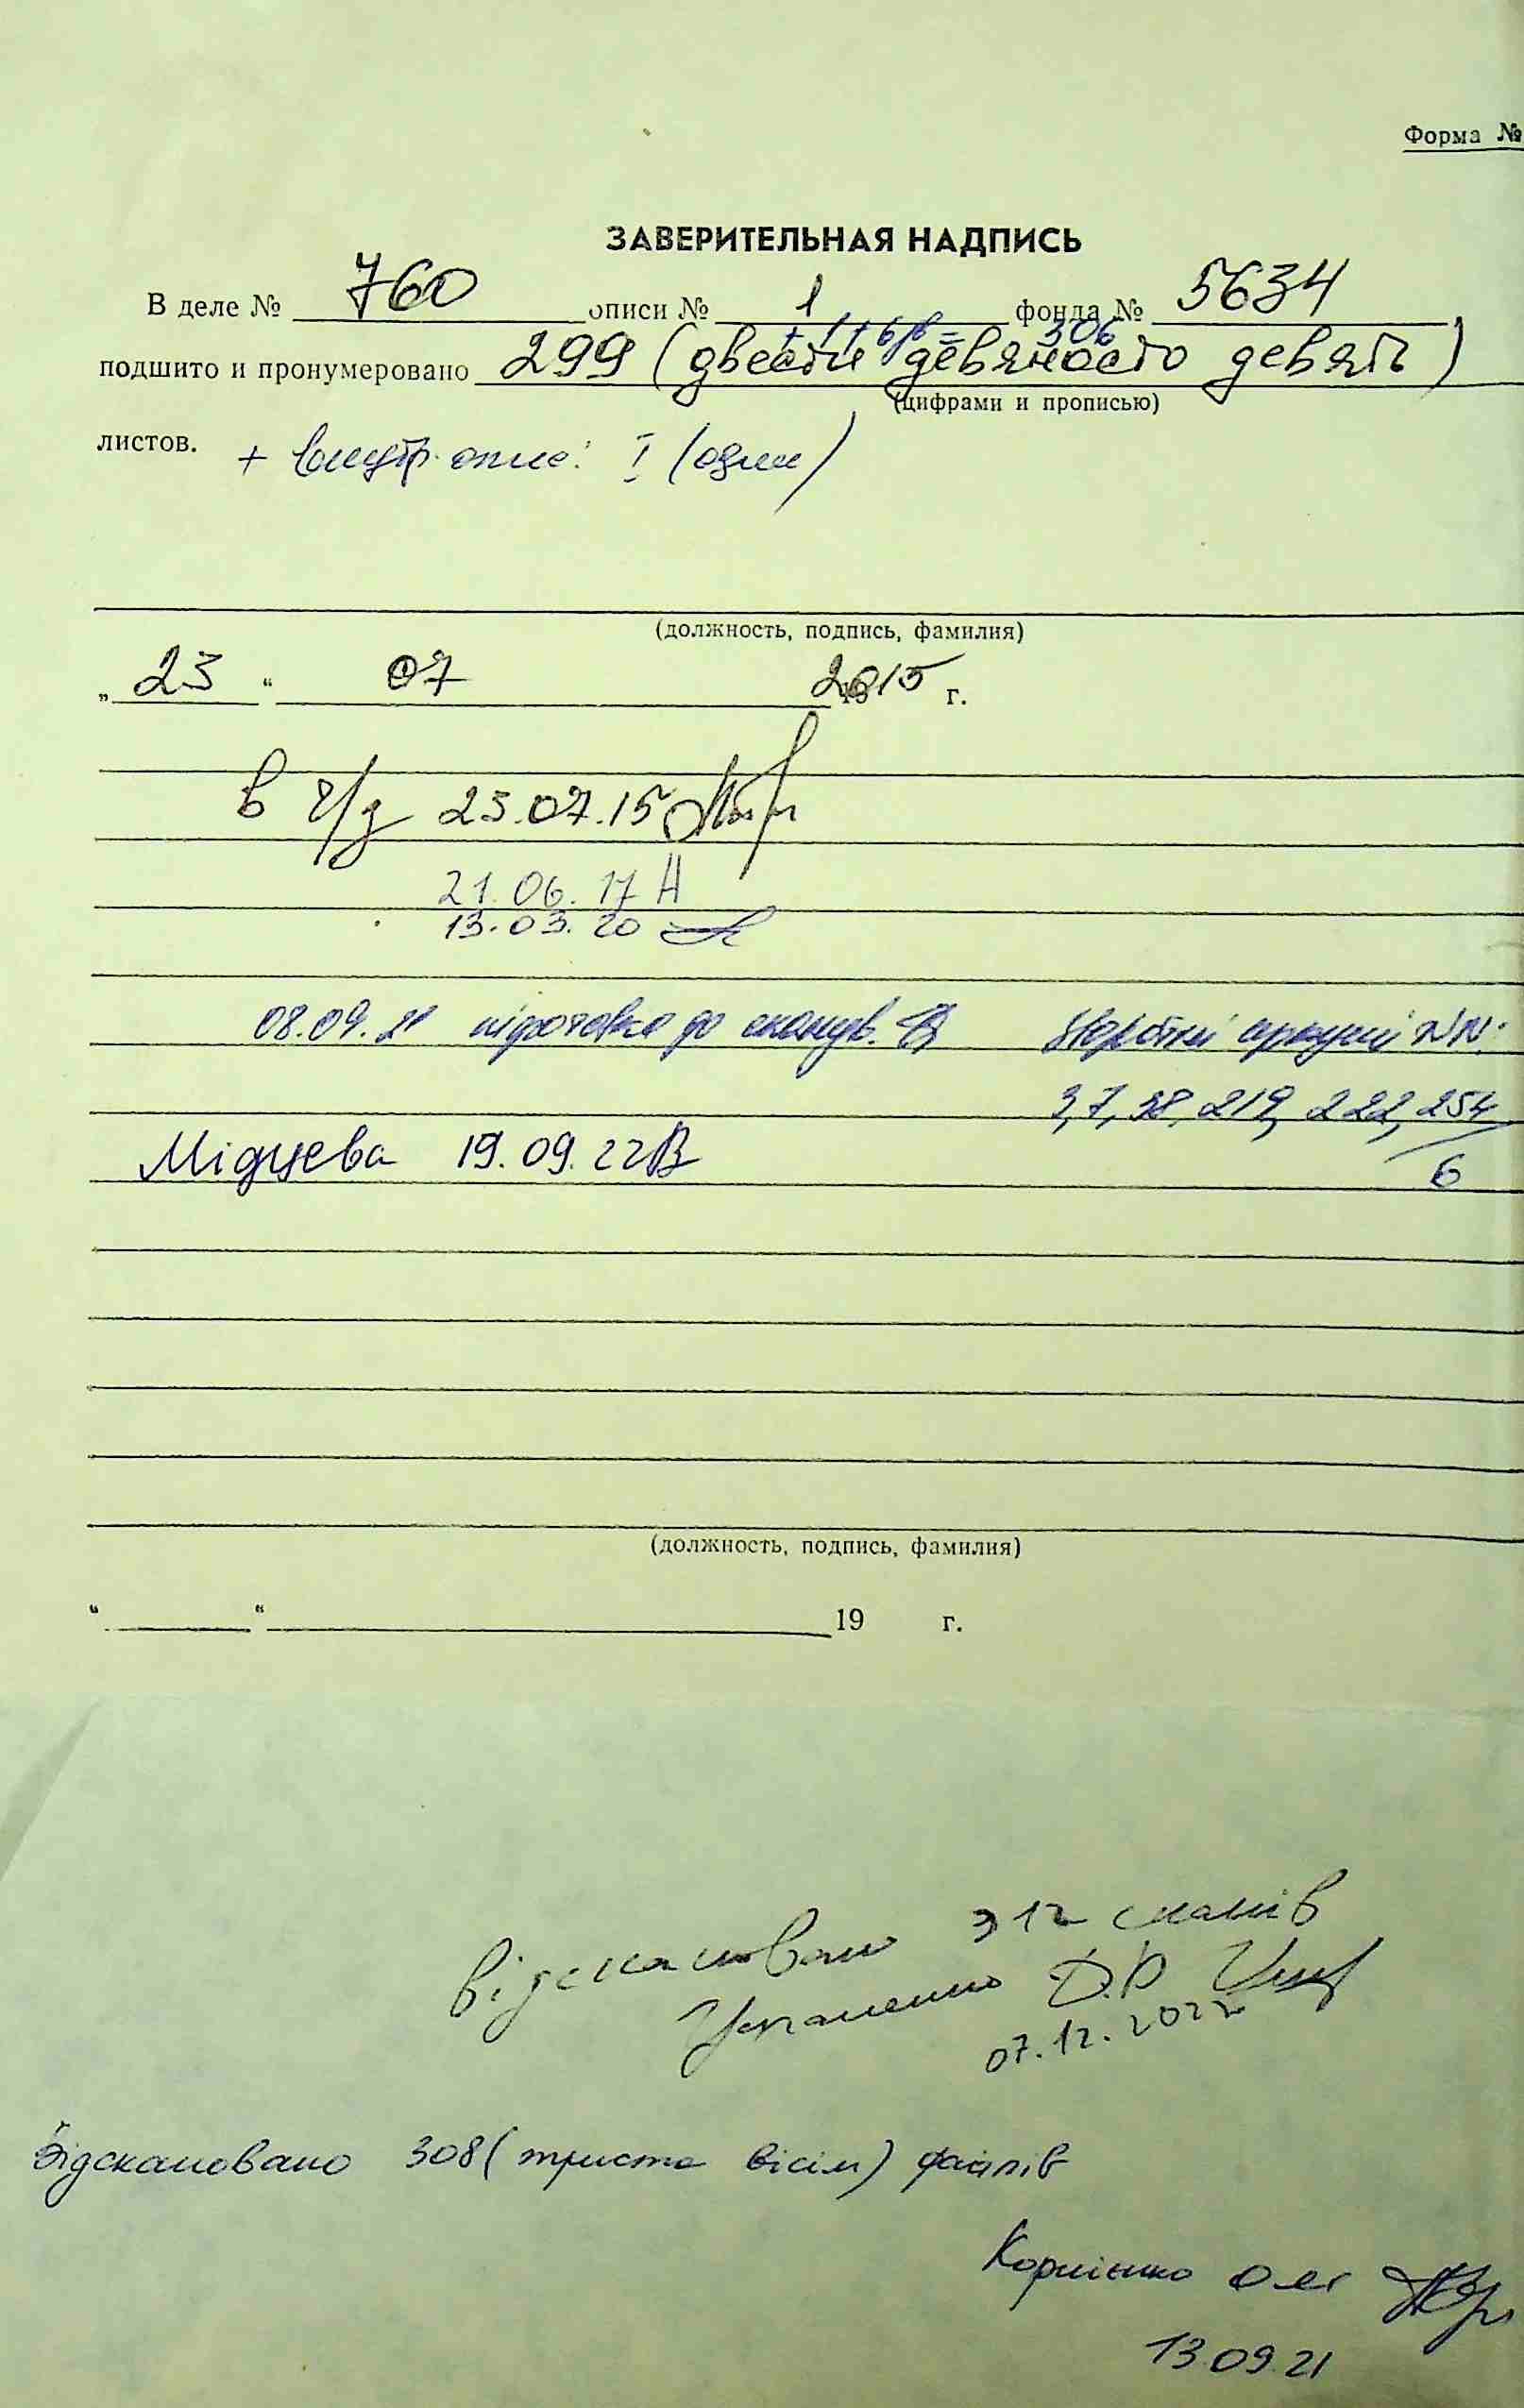 Форма №
ЗАВЕРИТЕЛЬНАЯ НАДПИСЬ
В деле № 760 описи № 1 фонда № 5634
306
подшито и пронумеровано 299 (двести девяносто девять)
(цифрами и прописью)
листов. + внутр. опис: I (один)
(должность, подпись, фамилия)
„ 23 “ 07 2015 г.
в ч/з 23.07.15
21.06.17
13.03.20
08.09.21 підготовка до сканув. Зворотні аркуші NN:
3, 7, 38, 219, 222, 254
6
19.09.22
(должность, подпись, фамилия)
“ “ 19 г.
Відскановано 312 сканів
Д.Р.
07.12.2022
Відскановано 308 (триста вісім) файлів
Корнієнко Олег
13.09.21